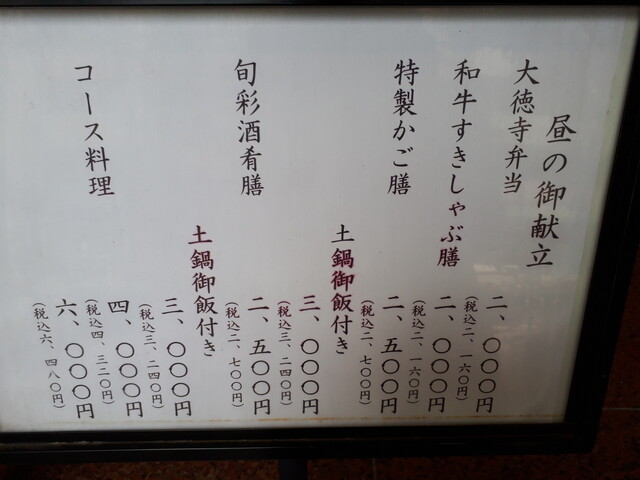 昼の御献立
大徳寺弁当 二、〇〇〇円
(税込二、一六〇円)
和牛すきしゃぶ膳 二、〇〇〇円
(税込二、一六〇円)
特製かご膳 二、五〇〇円
(税込二、七〇〇円)
土鍋御飯付き 三、〇〇〇円
(税込三、二四〇円)
旬彩酒肴膳 二、五〇〇円
(税込二、七〇〇円)
土鍋御飯付き 三、〇〇〇円
(税込三、二四〇円)
コース料理 四、〇〇〇円
(税込四、三二〇円)
六、〇〇〇円
(税込六、四八〇円)